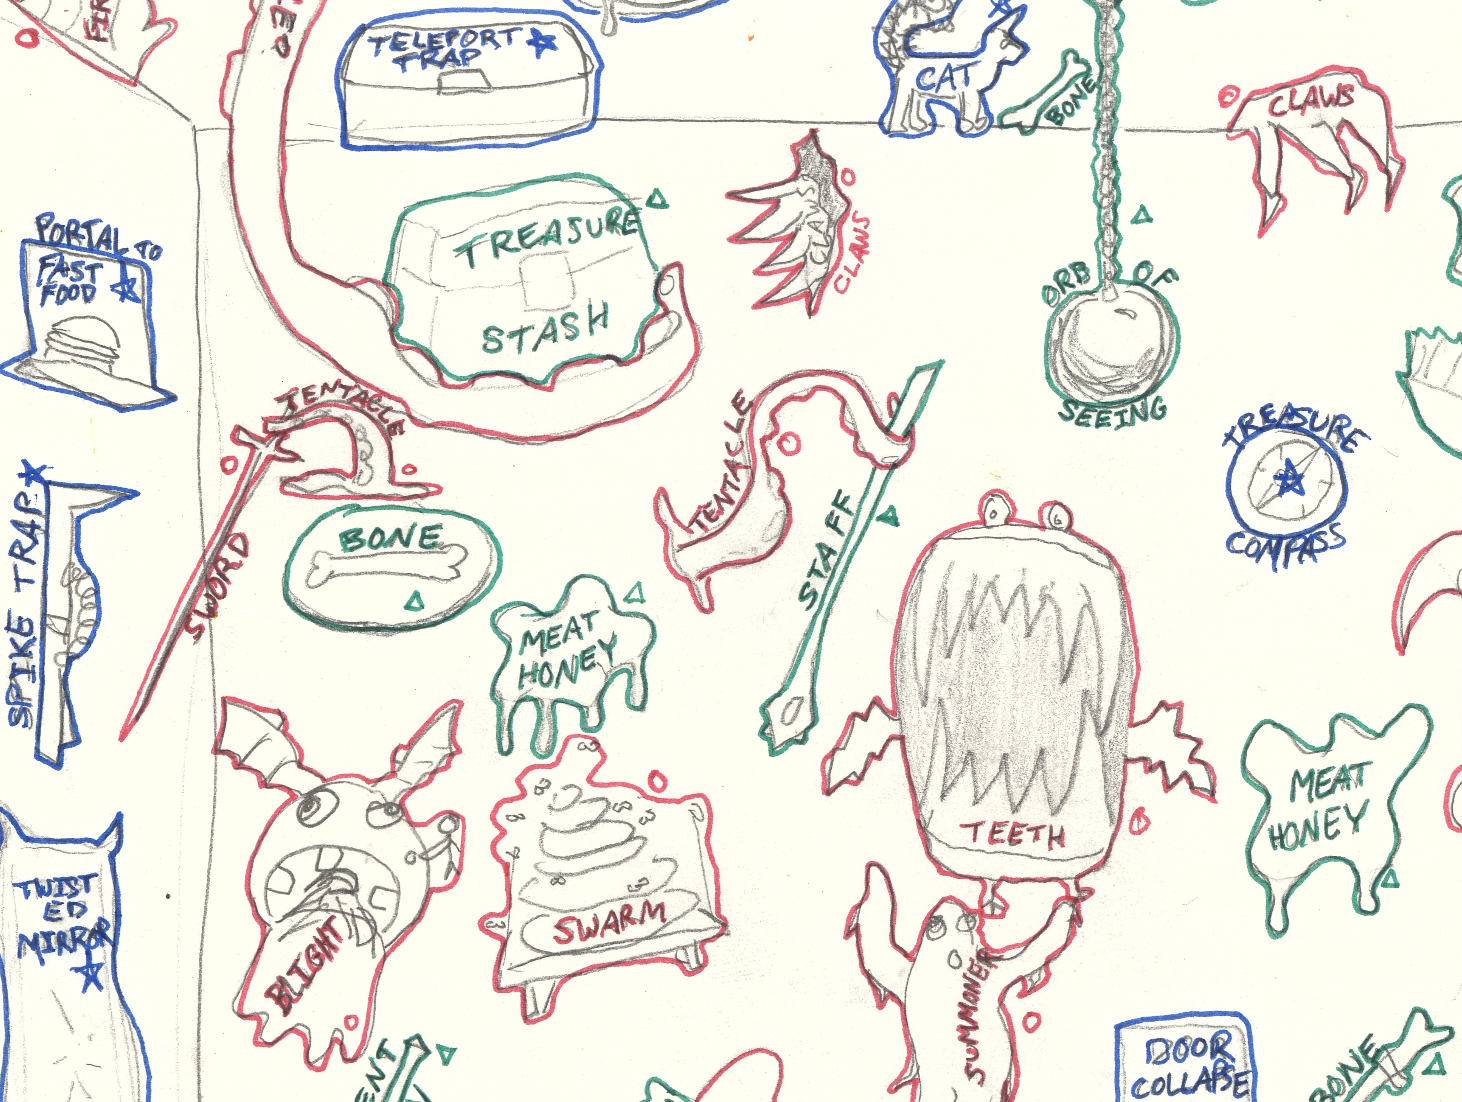 TELEPORT
TRAP
CAT
BONE
CLAWS
TREASURE
STASH
CLAWS
PORTAL TO
FAST
FOOD
ORB OF
SEEING
TENTACLE
SWORD
BONE
TENTACLE
STAFF
TREASURE
COMPASS
SPIKE TRAP
MEAT
HONEY
TEETH
MEAT
HONEY
TWIST
ED
MIRROR
BLIGHT
SWARM
SUMMONER
DOOR
COLLAPSE
BONE